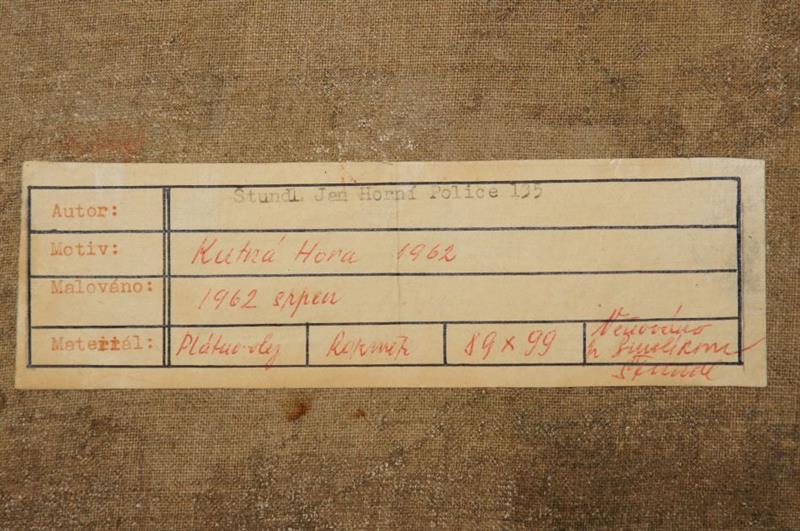 Autor: Štundl Jan Horní Police 135
Motiv: Kutná Hora 1962
Malováno: 1962 srpen
Materiál: Plátno-olej Rozměr 89 x 99 Věnováno
Štundl